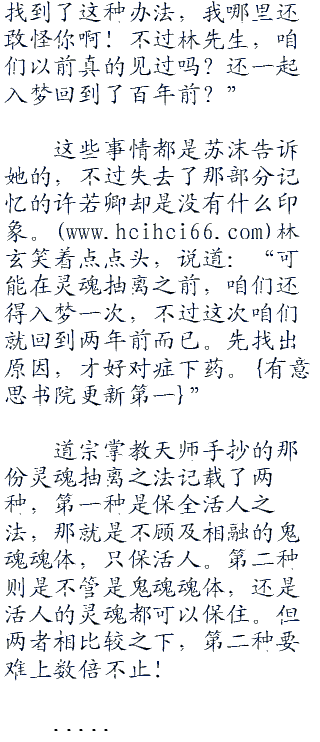 找到了这种办法，我哪里还
敢怪你啊！不过林先生，咱
们以前真的见过吗？还一起
入梦回到了百年前？”
这些事情都是苏沫告诉
她的，不过失去了那部分记
忆的许若卿却是没有什么印
象。(www.hcihci66.com)林
玄笑着点点头，说道：“可
能在灵魂抽离之前，咱们还
得入梦一次，不过这次咱们
就回到两年前而已。先找出
原因，才好对症下药。{有意
思书院更新第一}”
道宗掌教天师手抄的那
份灵魂抽离之法记载了两
种，第一种是保全活人之
法，那就是不顾及相融的鬼
魂魂体，只保活人。第二种
则是不管是鬼魂魂体，还是
活人的灵魂都可以保住。但
两者相比较之下，第二种要
难上数倍不止！
.....